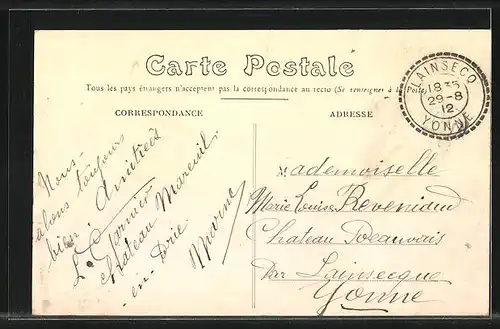 Carte Postale
Tous les pays étrangers n'acceptent pas la correspondance au recto (Se renseigner à la Poste)
CORRESPONDANCE
ADRESSE
LAINSECQ
18 35
29-8
12
YONNE
Nous
allons toujours
bien. Amitiés
L. Cornier
Château Mareuil
-en-Brie
Marne
Mademoiselle
Marie Louise
Chateau Beauvais
Par Lainsecque
Yonne